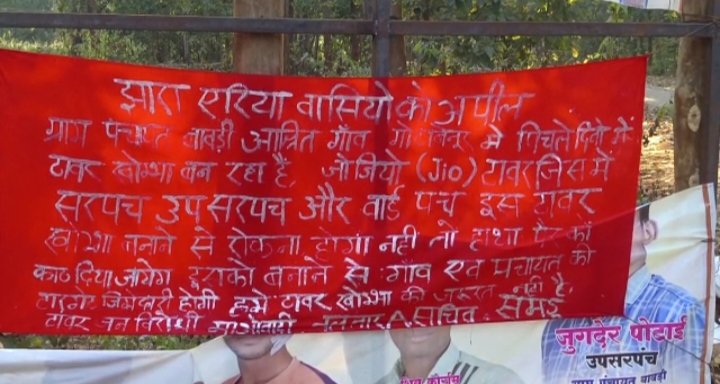 झारा एरिया वासियो को अपील
ग्राम पंचायत बावड़ी आश्रित गाँव में पिछले दिनों में
टावर खोम्भा बन रहा है, जो जियो (Jio) टावर जिसमें
सरपच उपसरपच और वार्ड पंच इस टावर
खोम्भा बनाने से रोकना होगा नहीं तो हाथा पैर को
काठ दिया जायेगा इसको बनाने से गाँव एवं पंचायत की
टारगेट जिमेदारी होगी हमे टावर खोम्भा की जरूरत नही है,
टावर जन विरोधी माओवादी
जुगदेर पोटाई
उपसरपंच
ग्राम पंचायत बावड़ी